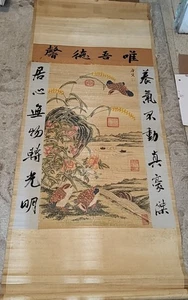 唯吾德馨
養氣不動真豪傑
居心無物轉光明